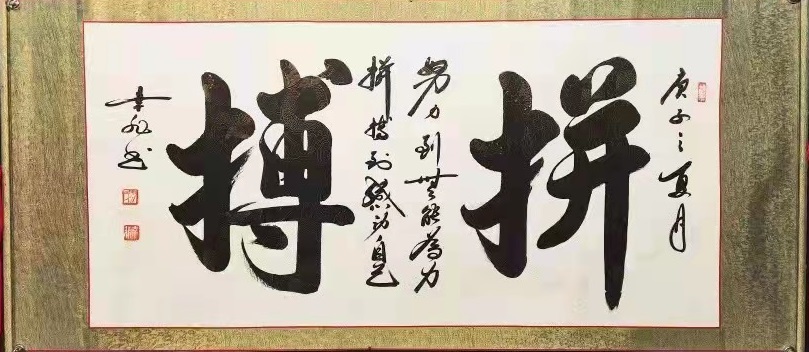 庚子之夏月
拼
努力到無能為力
拼搏到感动自己
搏
书